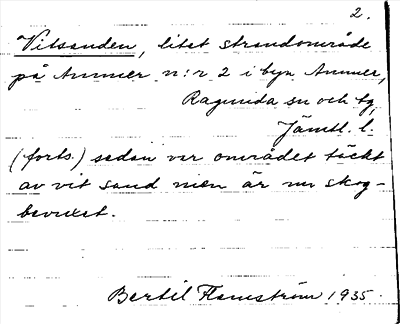 2.
Vitsanden, litet strandområde
på Ammer n:r 2 i byn Ammer,
Ragunda sn och tg,
Jämtl. l.
(forts.) sedan var området täckt
av vit sand men är nu skog-
bevuxet.
Bertil Flemström 1935